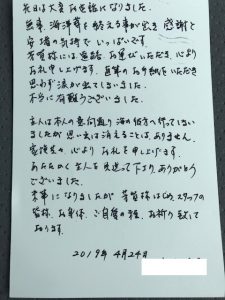 先日は大変お世話になりました。
無事、海洋葬を終える事が出来、感謝と
安堵の気持でいっぱいです。
皆様には、連絡、お気遣いいただき、心より
お礼申し上げます。直筆のお手紙をいただき
思わず涙が出てしまいました。
本当に有難うございました。
主人は本人の意向通り海の彼方へ行ってしまい
ましたが思い出は消えることは、ありません。
家族共々、心より、お礼を申し上げます。
あたたかく主人を見送って下さり、ありがとう
ございました。
末筆になりましたが皆様はじめ、スタッフの
皆様、お身体、ご自愛の程、お祈り致して
おります。
2019年4月24日